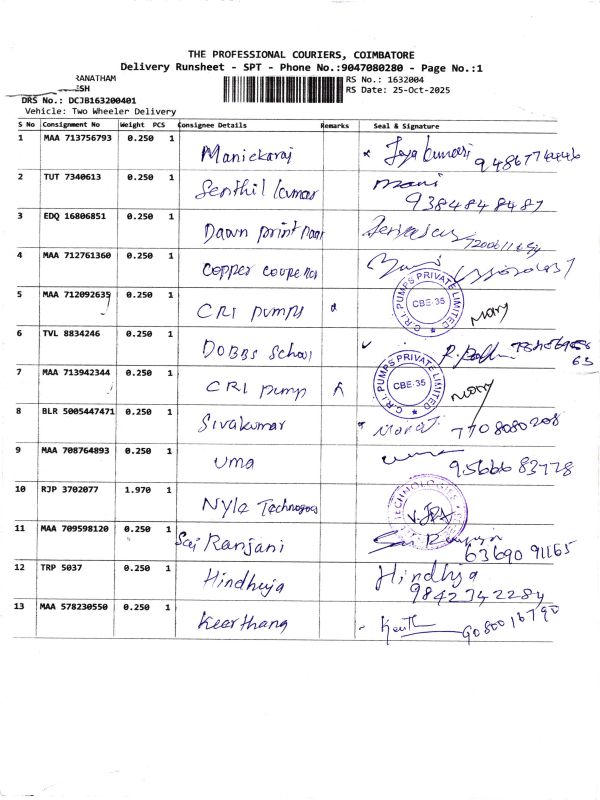 THE PROFESSIONAL COURIERS, COIMBATORE
Delivery Runsheet - SPT - Phone No.:9047080280 - Page No.:1
RANATHAM
SH
RS No.: 1632004
RS Date: 25-Oct-2025
DRS No.: DCJB163200401
Vehicle: Two Wheeler Delivery
S No Consignment No Weight PCS Consignee Details Remarks Seal & Signature
1 MAA 713756793 0.250 1 Manickaraj Jeyakumari
2 TUT 7340613 0.250 1 Senthil kumar mani
9384848487
3 EDQ 16806851 0.250 1 Dawn print
4 MAA 712761360 0.250 1 Copper
5 MAA 712092635 0.250 1 CRI pumps C.R.I. PUMPS PRIVATE LIMITED CBE-35 Mary
6 TVL 8834246 0.250 1 DOBBS School
7 MAA 713942344 0.250 1 CRI pump C.R.I. PUMPS PRIVATE LIMITED CBE-35 Mary
8 BLR 5005447471 0.250 1 Sivakumar 7708080208
9 MAA 708764893 0.250 1 uma uma
9566683778
10 RJP 3702077 1.970 1 Nyla TECHNOLOGIES
11 MAA 709598120 0.250 1 Sai Ranjani
63690 91165
12 TRP 5037 0.250 1 Hindhuja Hindhja
9842742284
13 MAA 578230550 0.250 1 Keerthana Keerth 9080016790